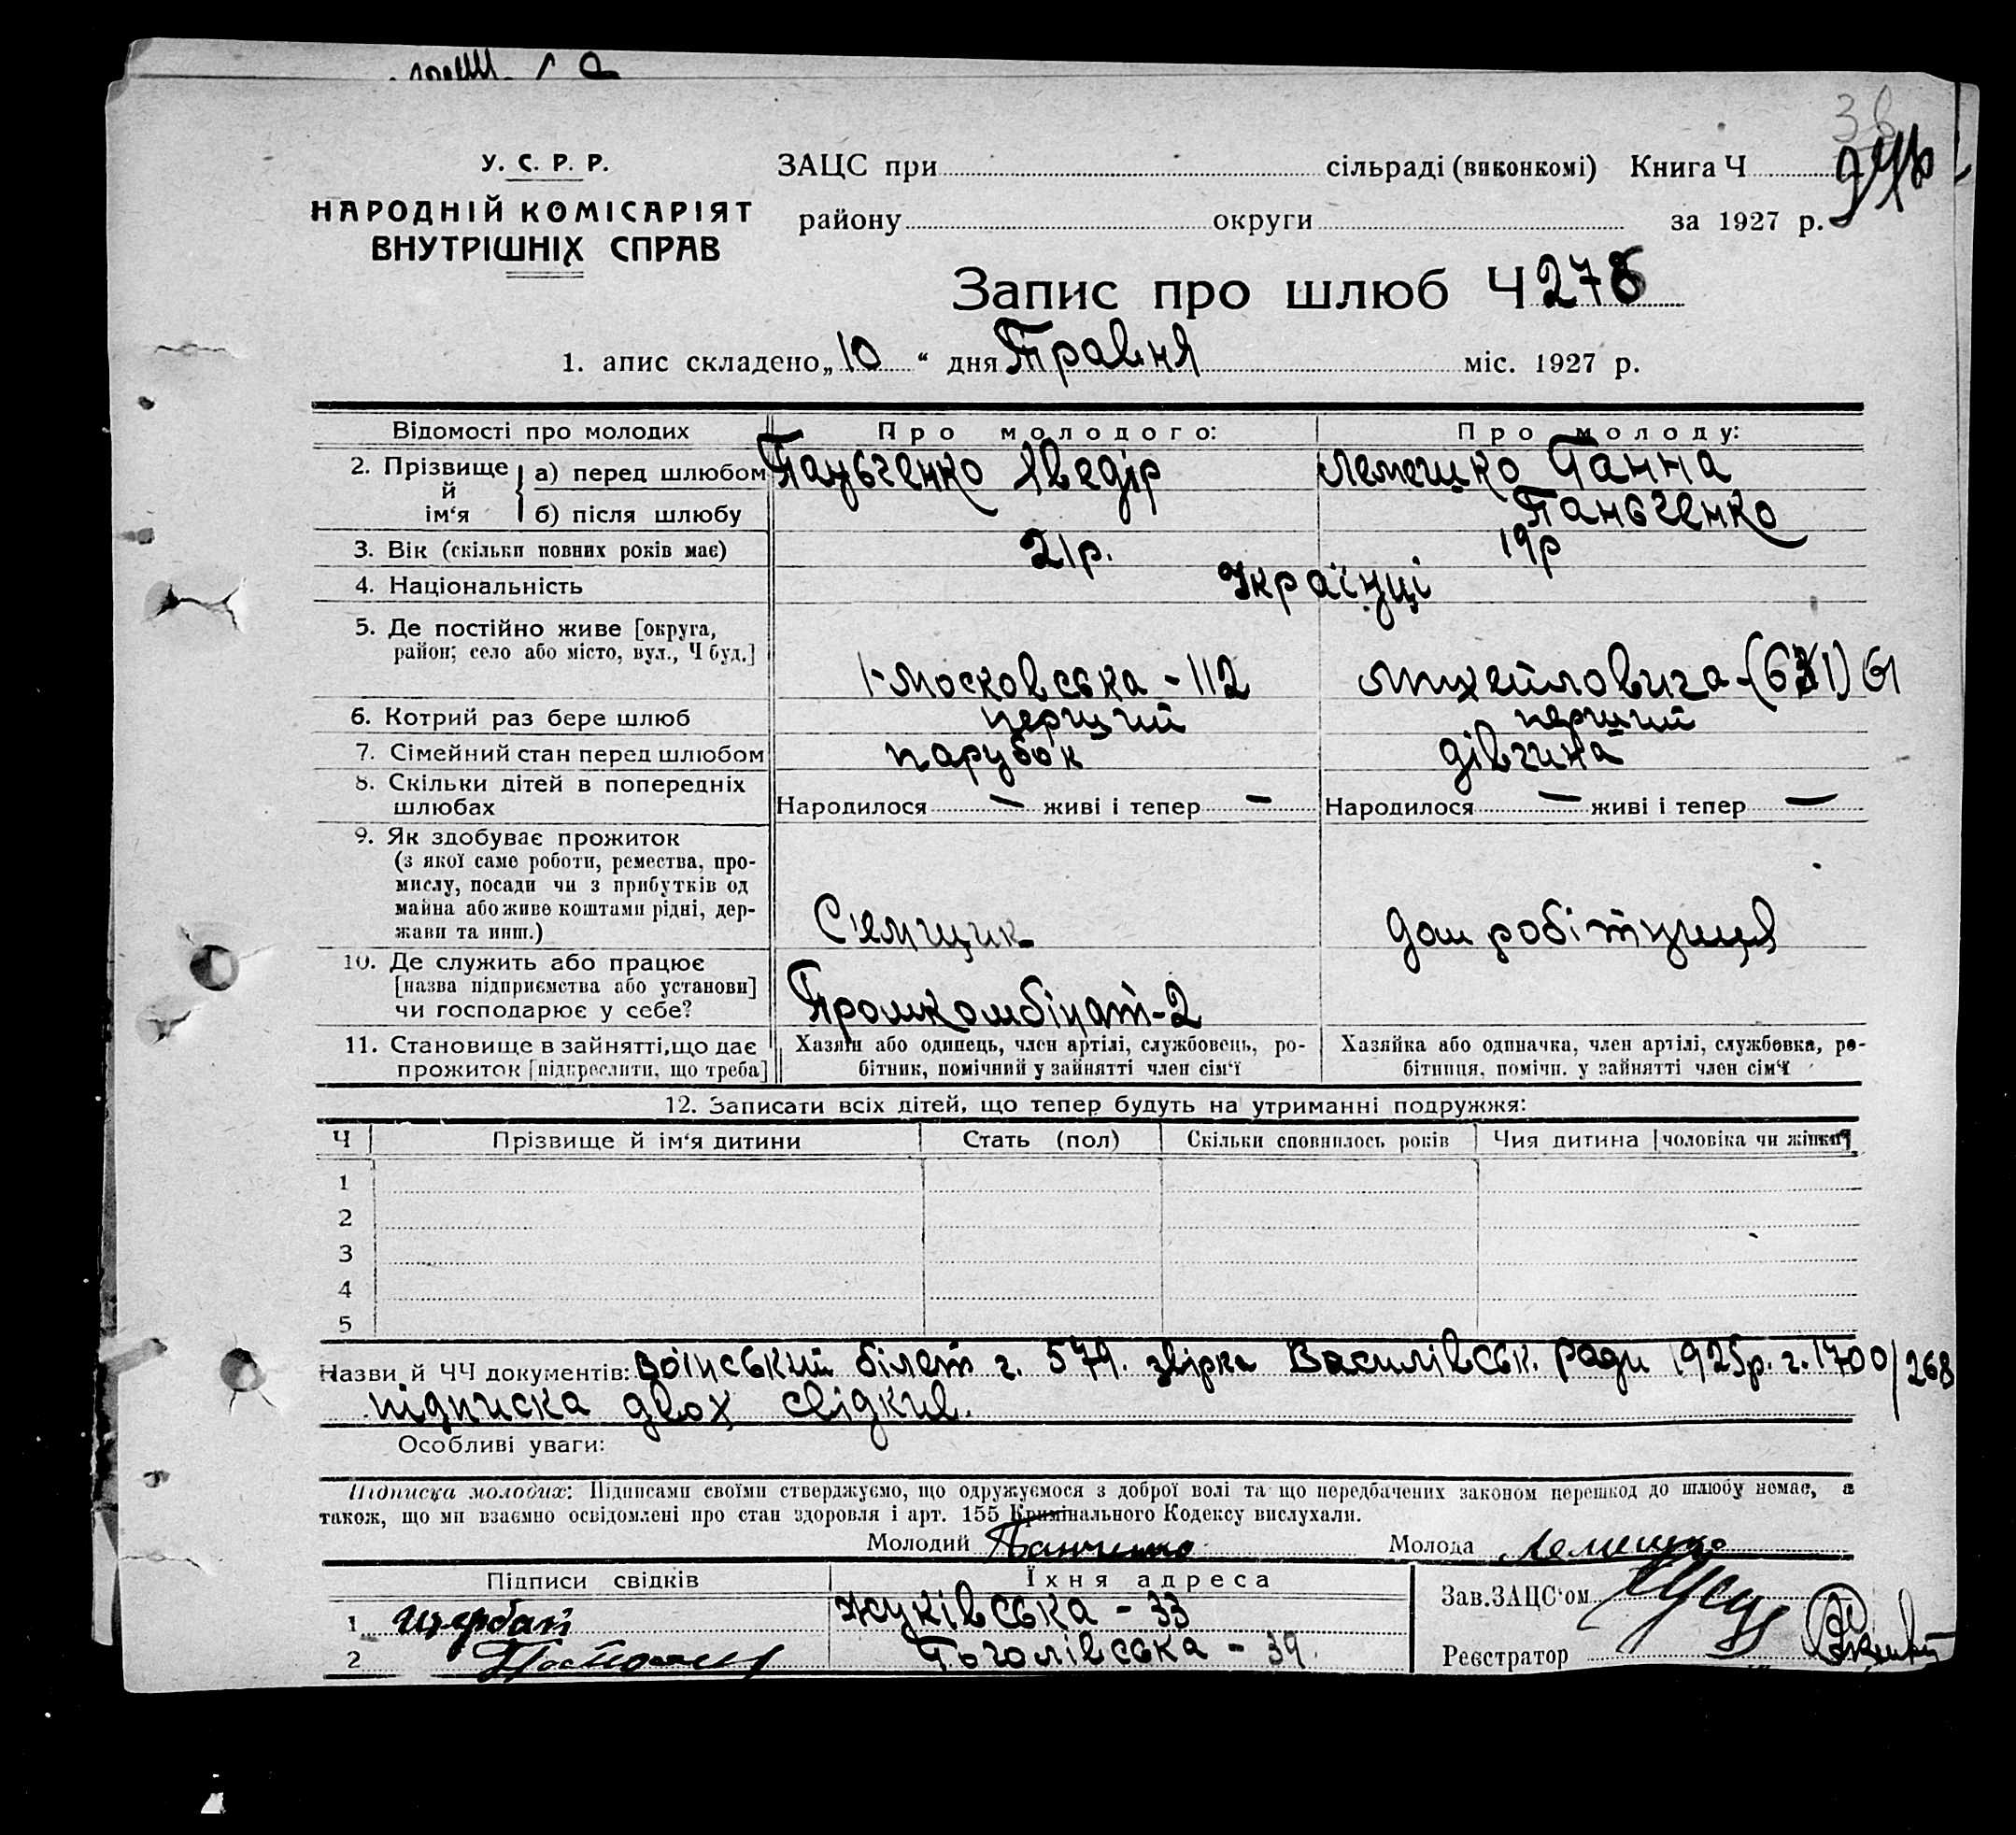 У. С. Р. Р.
НАРОДНІЙ КОМІСАРІЯТ
ВНУТРІШНІХ СПРАВ
ЗАЦС при сільраді (виконкомі) Книга Ч
району округи за 1927 р.
Запис про шлюб Ч 278
1. апис складено „10“ дня Травня міс. 1927 р.
Відомості про молодих Про молодого: Про молоду:
2. Прізвище й ім‘я а) перед шлюбом Паньченко Хведір Лемешко Ганна
б) після шлюбу Паньченко
3. Вік (скільки повних років має) 21р. 19р
4. Національність Українці
5. Де постійно живе [округа,
район; село або місто, вул., Ч буд.] 1-Московська - 112 Михайловича - 61
6. Котрий раз бере шлюб перший перший
7. Сімейний стан перед шлюбом парубок дівчина
8. Скільки дітей в попередніх
шлюбах Народилося — живі і тепер — Народилося — живі і тепер —
9. Як здобуває прожиток
(з якої саме роботи, ремества, про-
мислу, посади чи з прибутків од
майна або живе коштами рідні, дер-
жави та инш.) дом робітниця
10. Де служить або працює
[назва підприємства або установи]
чи господарює у себе? Промкомбінат-2
11. Становище в зайнятті, що дає
прожиток [підкреслити, що треба]
Хазяїн або одинець, член артілі, службовець, ро-
бітник, помічний у зайнятті член сім‘ї
Хазяйка або одиначка, член артілі, службовка, ро-
бітниця, помічн. у зайнятті член сім‘ї
12. Записати всіх дітей, що тепер будуть на утриманні подружжя:
Ч Прізвище й ім‘я дитини Стать (пол) Скільки сповнилось років Чия дитина [чоловіка чи жінки]
1
2
3
4
5
Назви й ЧЧ документів: воїнський білет ч. 579. звірка Василівськ. ради 1925р. ч. 1700/268
підписка двох свідків.
Особливі уваги:
Підписка молодих: Підписами своїми стверджуємо, що одружуємося з доброї волі та що передбачених законом перешкод до шлюбу немає, а
також, що ми взаємно освідомлені про стан здоровля і арт. 155 Кримінального Кодексу вислухали.
Молодий Панченко Молода Лемешко
Підписи свідків Їхня адреса
1 Щербак Жуківська - 33
2 Гоголівська - 39.
Зав. ЗАЦС‘ом
Реєстратор